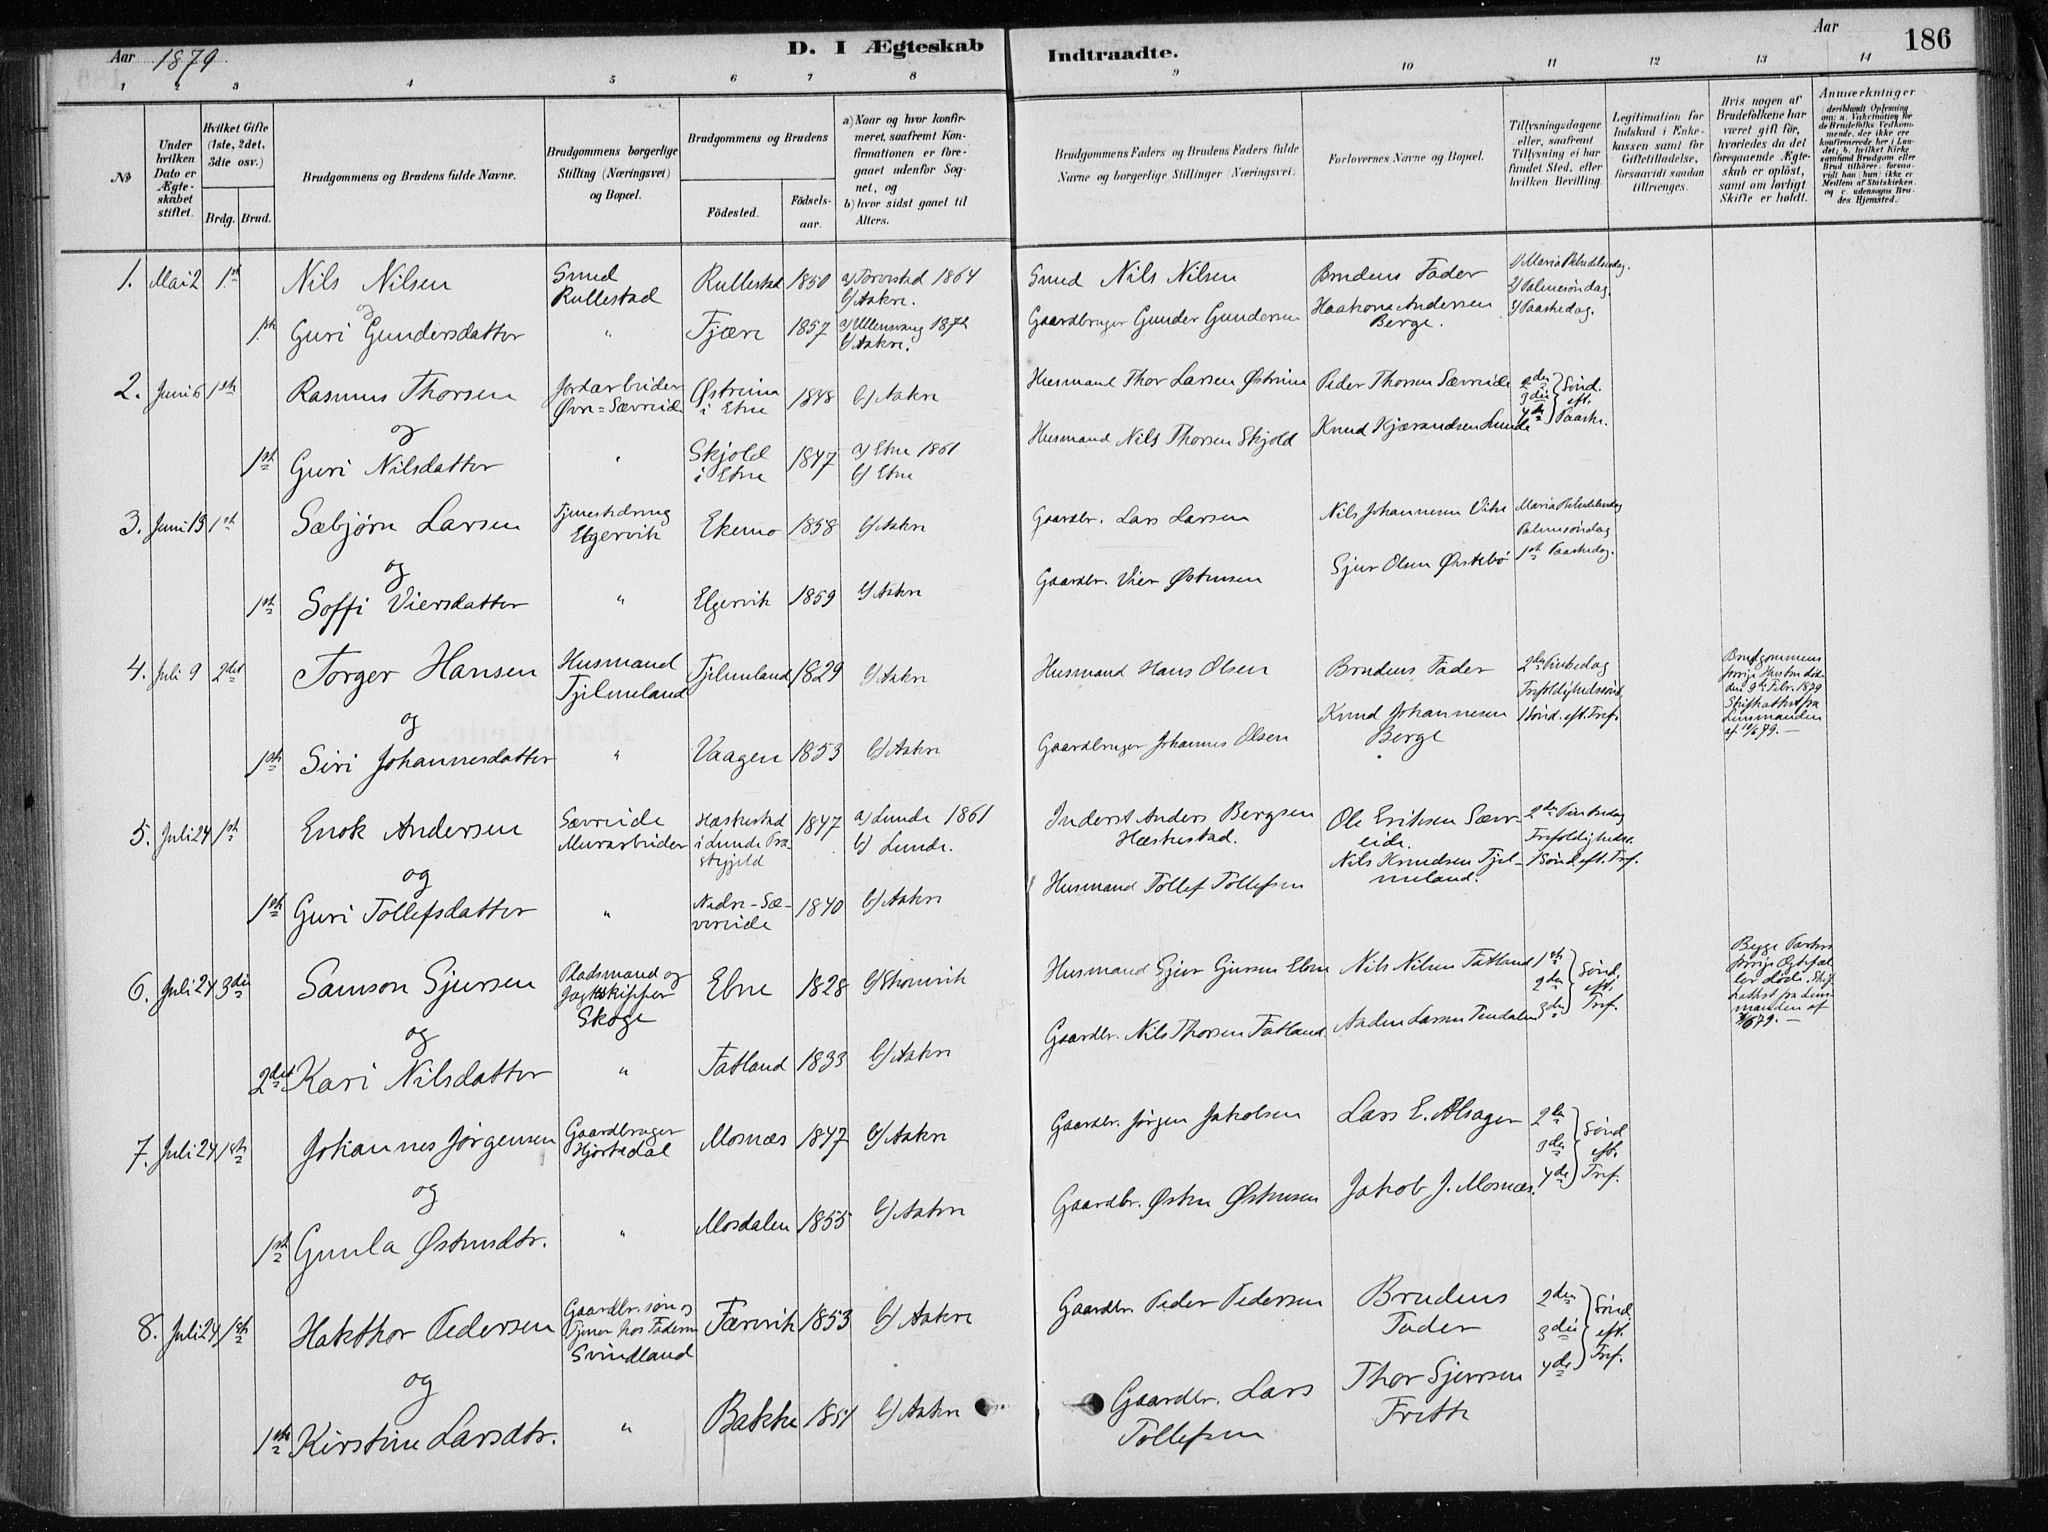 Aar 1879
D. I Ægteskab
Indtraadte.
Aar
186
1 2 3 4 5 6 7 8 9 10 11 12 13 14
No
Under hvilken Dato er Ægteskabet stiftet.
Hvilket Gifte (1ste, 2det, 3die osv.)
Brdg. Brud.
Brudgommens og Brudens fulde Navne.
Brudgommens borgerlige Stilling (Næringsvei) og Bopæl.
Brudgommens og Brudens
Födested.
Födselsaar.
a) Naar og hvor konfirmeret, saafremt Konfirmationen er foregaaet udenfor Sognet, og
b) hvor sidst gaaet til Alters.
Brudgommens Faders og Brudens Faders fulde Navne og borgerlige Stillinger (Næringsvei).
Forlovernes Navne og Bopæl.
Tillysningsdagene eller, saafremt Tillysning ei har fundet Sted, efter hvilken Bevilling.
Legitimation for Indskud i Enkekassen samt for Giftetilladelse, forsaavidt saadan tiltrænges.
Hvis nogen af Brudefolkene har været gift för, hvorledes da det foregaaende Ægteskab er oplöst, samt om lovligt Skifte er holdt.
Anmærkninger
(deriblandt Oplysning om: a. Vaccination for de Brudefolks Vedkommende, der ikke ere konfirmerede her i Landet; b. hvilket Kirkesamfund Brudgom eller Brud tilhörer, forsaavidt han (hun) ikke er Medlem af Statskirken, og c. udensogns Brudes Hjemsted.)
1. Mai 2 1ste Nils Nilsen Smed Rullestad Rullestad 1850 a) 1864 b) Aakre. Smed Nils Nilsen Brudens Fader 1) Maria Bebudelsedag.
og 2) Palmesöndag.
1ste Guri Gundersdatter " Fjære 1857 a) Ullensvang 1872 b) Aakre. Gaardbruger Gunder Gundersen Haakon Andersen Berge. 3) Paaskedag.
2. Juni 6 1ste Rasmus Thorsen Jordarbeider Øvre=Sævreide Østreim i Etne 1848 b) Aakre Husmand Thor Larsen Østreim Peder Thorsen Sævreide 2den 3die 4de Sönd. eft. Paaske.
og
1ste Guri Nilsdatter " Skjold i Etne 1847 a) Etne 1861 b) Etne Husmand Nils Thorsen Skjold Knud Kjærandsen Lunde
3. Juni 13 1ste Sæbjørn Larsen Tjenestedreng Elgervik Ekemo 1858 b) Aakre Gaardbr. Lars Larsen Nils Johannesen Vike Maria Bebudelsedag
og Palmesöndag
1ste Soffi Viersdatter " Elgervik 1859 b) Aakre Gaardbr. Vier Østensen Sjur Olsen Østebö 1ste Paaskedag.
4. Juli 9 2det Torger Hansen Husmand Fjelmeland Fjelmeland 1829 b) Aakre Husmand Hans Olsen Brudens Fader 2den Pintsedag Brudgommens forrige Hustru döde den 9de Febr. 1879 Skifteattest fra Lensmanden af 10/6 79. —
og Trefoldighedssönd.
1ste Siri Johannesdatter " Vaagen 1853 b) Aakre Gaardbruger Johannes Olsen Knud Johannesen Berge 1 Sönd. eft. Tref.
5. Juli 24 1ste Enok Andersen Sævreide Murarbeider Hæskestad i Lunde Præstegjeld 1847 a) Lunde 1861 b) Lunde. Inderst Anders Bergsen Hæskestad. Ole Eriksen Sævreide. 2den Pintsedag
og Trefoldigheds.
1ste Guri Tollefsdatter " Nedre-Sævreide 1840 b) Aakre Husmand Tollef Tollefsen Nils Knudsen Fjelmeland. 1 Sönd. eft. Tref.
6. Juli 24 3die Samson Sjursen Pladsmand og Jagtskipper Skoge Ebne 1828 b) Skonevik Husmand Sjur Sjursen Ebne Nils Nilsen Fatland 1ste 2den 3die Sönd. eft. Tref. Begge Parters forrige Ægtefæller döde. Skifteattest fra Lensmanden af 6 79. —
og
2det Kari Nilsdatter " Fatland 1833 b) Aakre Gaardbr. Nils Thorsen Fatland. Aaden Larsen Tendalen
7. Juli 24 1ste Johannes Jørgensen Gaardbruger Hjortedal Mosnæs 1847 b) Aakre Gaardbr. Jørgen Jakobsen Lars E. Alsager 2den 3die 4de Sönd. eft. Tref.
og
1ste Gunla Østensdtr. " Mosdalen 1855 b) Aakre Gaardbr. Østen Østensen Jakob J. Mosnæs.
8. Juli 24 1ste Hakthor Pedersen Gaardbr. søn og Tjener hos Faderen Svindland Færvik 1853 b) Aakre Gaardbr. Peder Pedersen Brudens Fader 2den 3die 4de Sönd. eft. Tref.
og
1ste Kirstine Larsdtr. " Bakke 1854 b) Aakre Gaardbr. Lars Tollefsen Thor Sjursen Frette